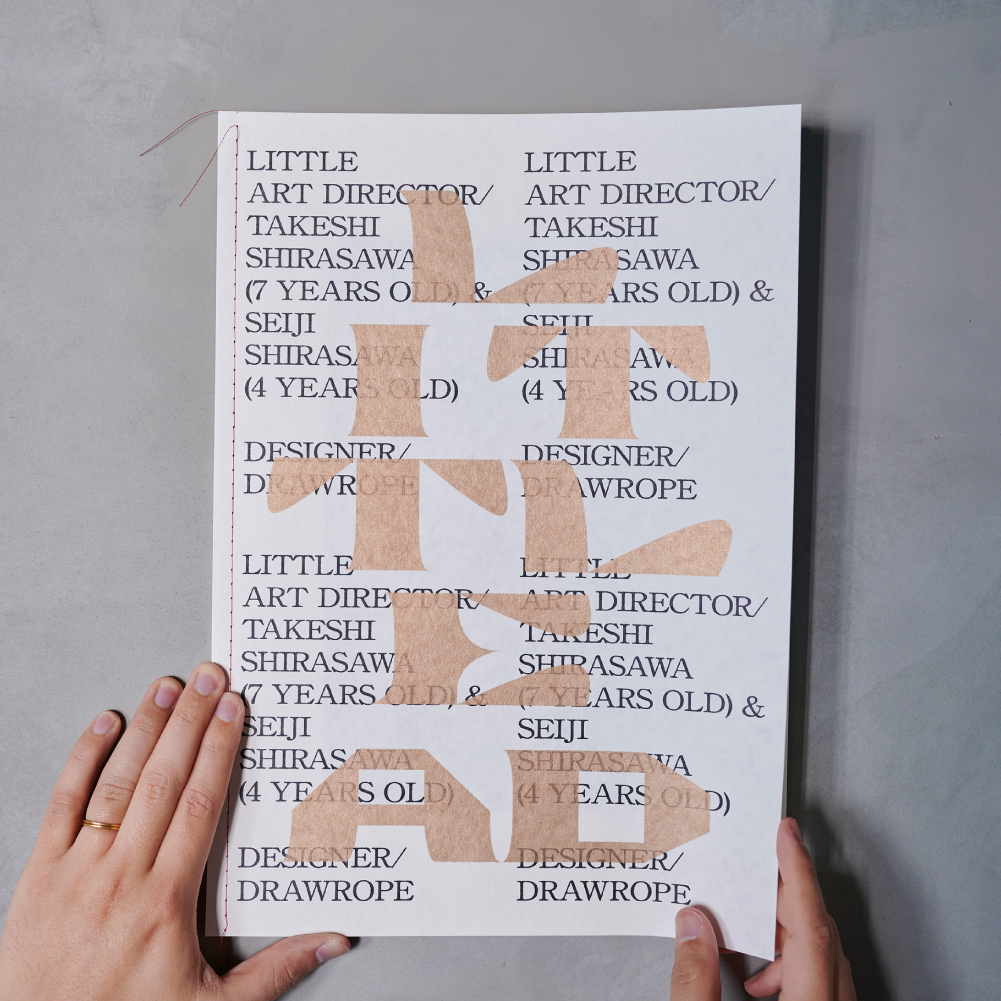 LITTLE
ART DIRECTOR/
TAKESHI
SHIRASAWA
(7 YEARS OLD) &
SEIJI
SHIRASAWA
(4 YEARS OLD)
DESIGNER/
DRAWROPE
LITTLE
ART DIRECTOR/
TAKESHI
SHIRASAWA
(7 YEARS OLD) &
SEIJI
SHIRASAWA
(4 YEARS OLD)
DESIGNER/
DRAWROPE
LITTLE
ART DIRECTOR/
TAKESHI
SHIRASAWA
(7 YEARS OLD) &
SEIJI
SHIRASAWA
(4 YEARS OLD)
DESIGNER/
DRAWROPE
LITTLE
ART DIRECTOR/
TAKESHI
SHIRASAWA
(7 YEARS OLD) &
SEIJI
SHIRASAWA
(4 YEARS OLD)
DESIGNER/
DRAWROPE
L
IT
TL
E
AD